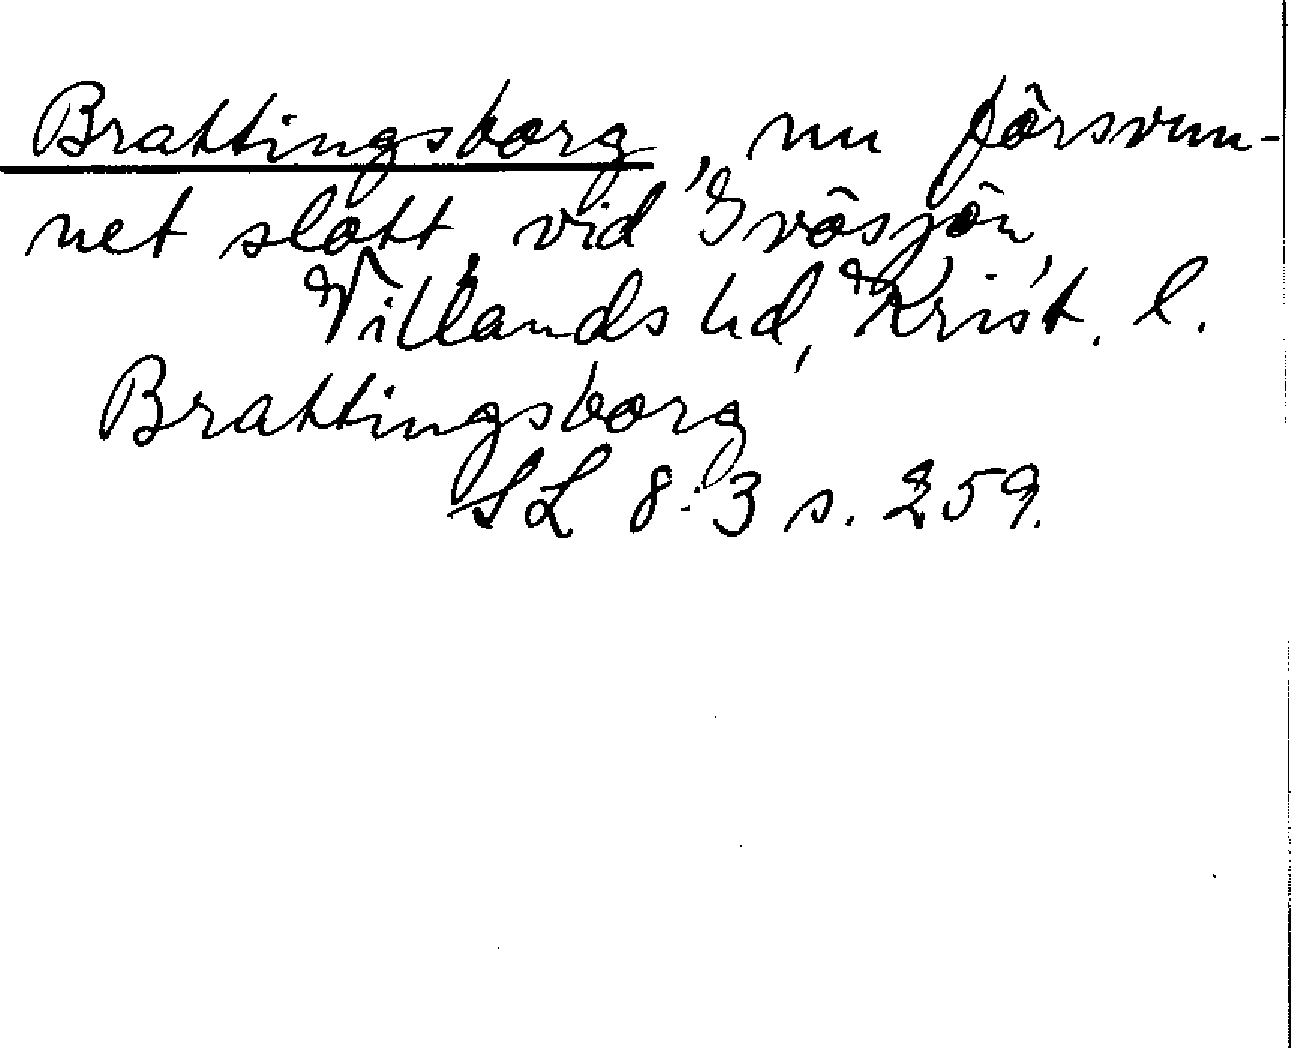 Brattingsborg, nu försvun-
net slott, vid Ivösjön,
Villands hd, Krist. l.
Brattingsborg
SL 8:3 s. 259.